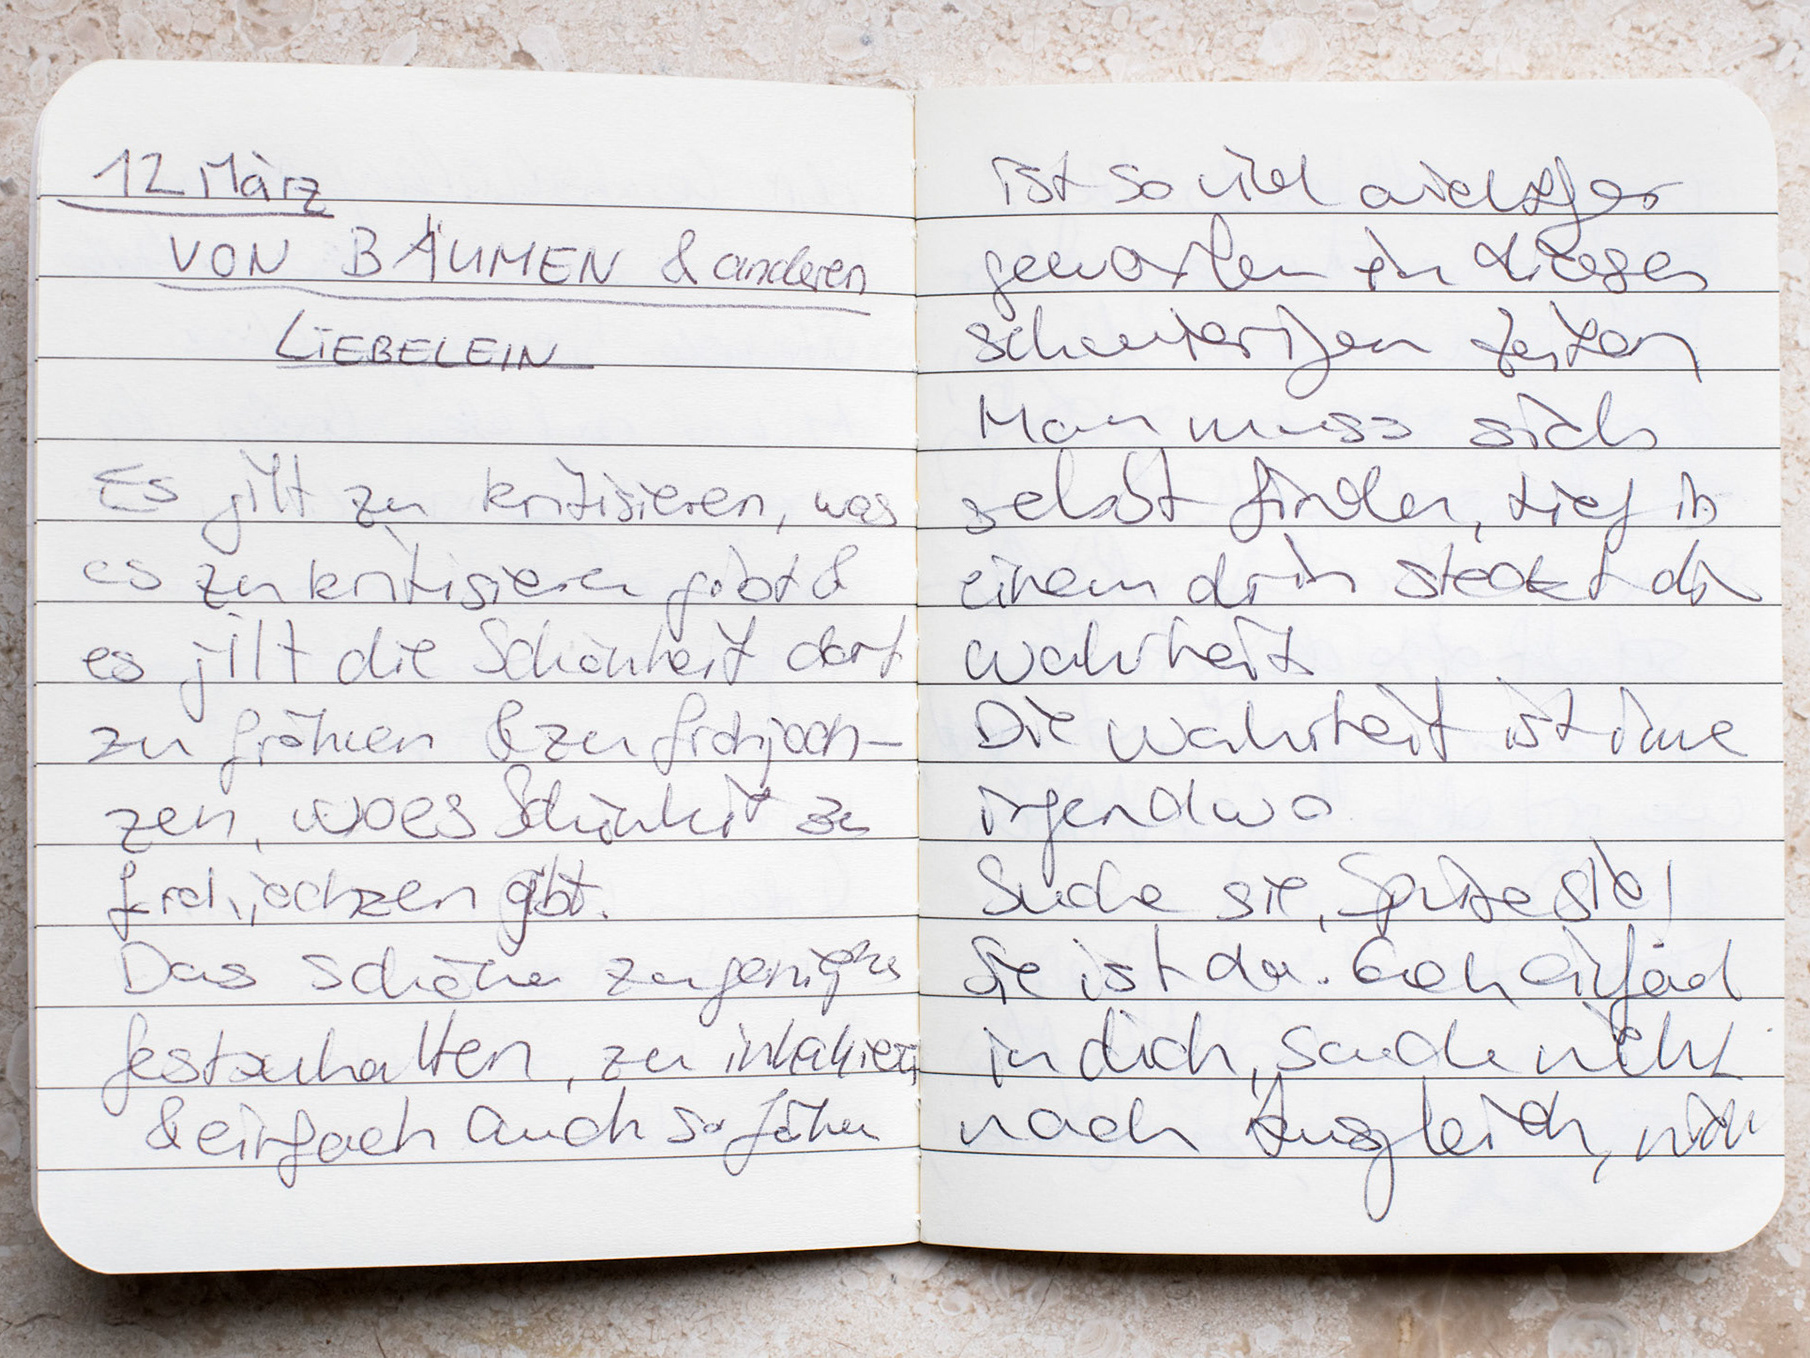 12 März
VON BÄUMEN & anderen
LIEBELEIN
Es gilt zu kritisieren, was
es zu kritisieren gibt &
es gilt die Schönheit dort
zu frönen & zu frohjoch-
zen, wo es Schönheit zu
frohjochzen gibt.
Das Schöne zu
festzuhalten, zu inhalieren
& einfach auch so
ist so viel wichtiger
geworden in diesen
schwierigen Zeiten
Man muss sich
selbst finden, tief in
einem drin steckt die
Wahrheit
Die Wahrheit ist
irgendwo
Suche sie, Spüre sie!
Sie ist da. Geh einfach
in dich, suche nicht
nach Ausgleich, nicht